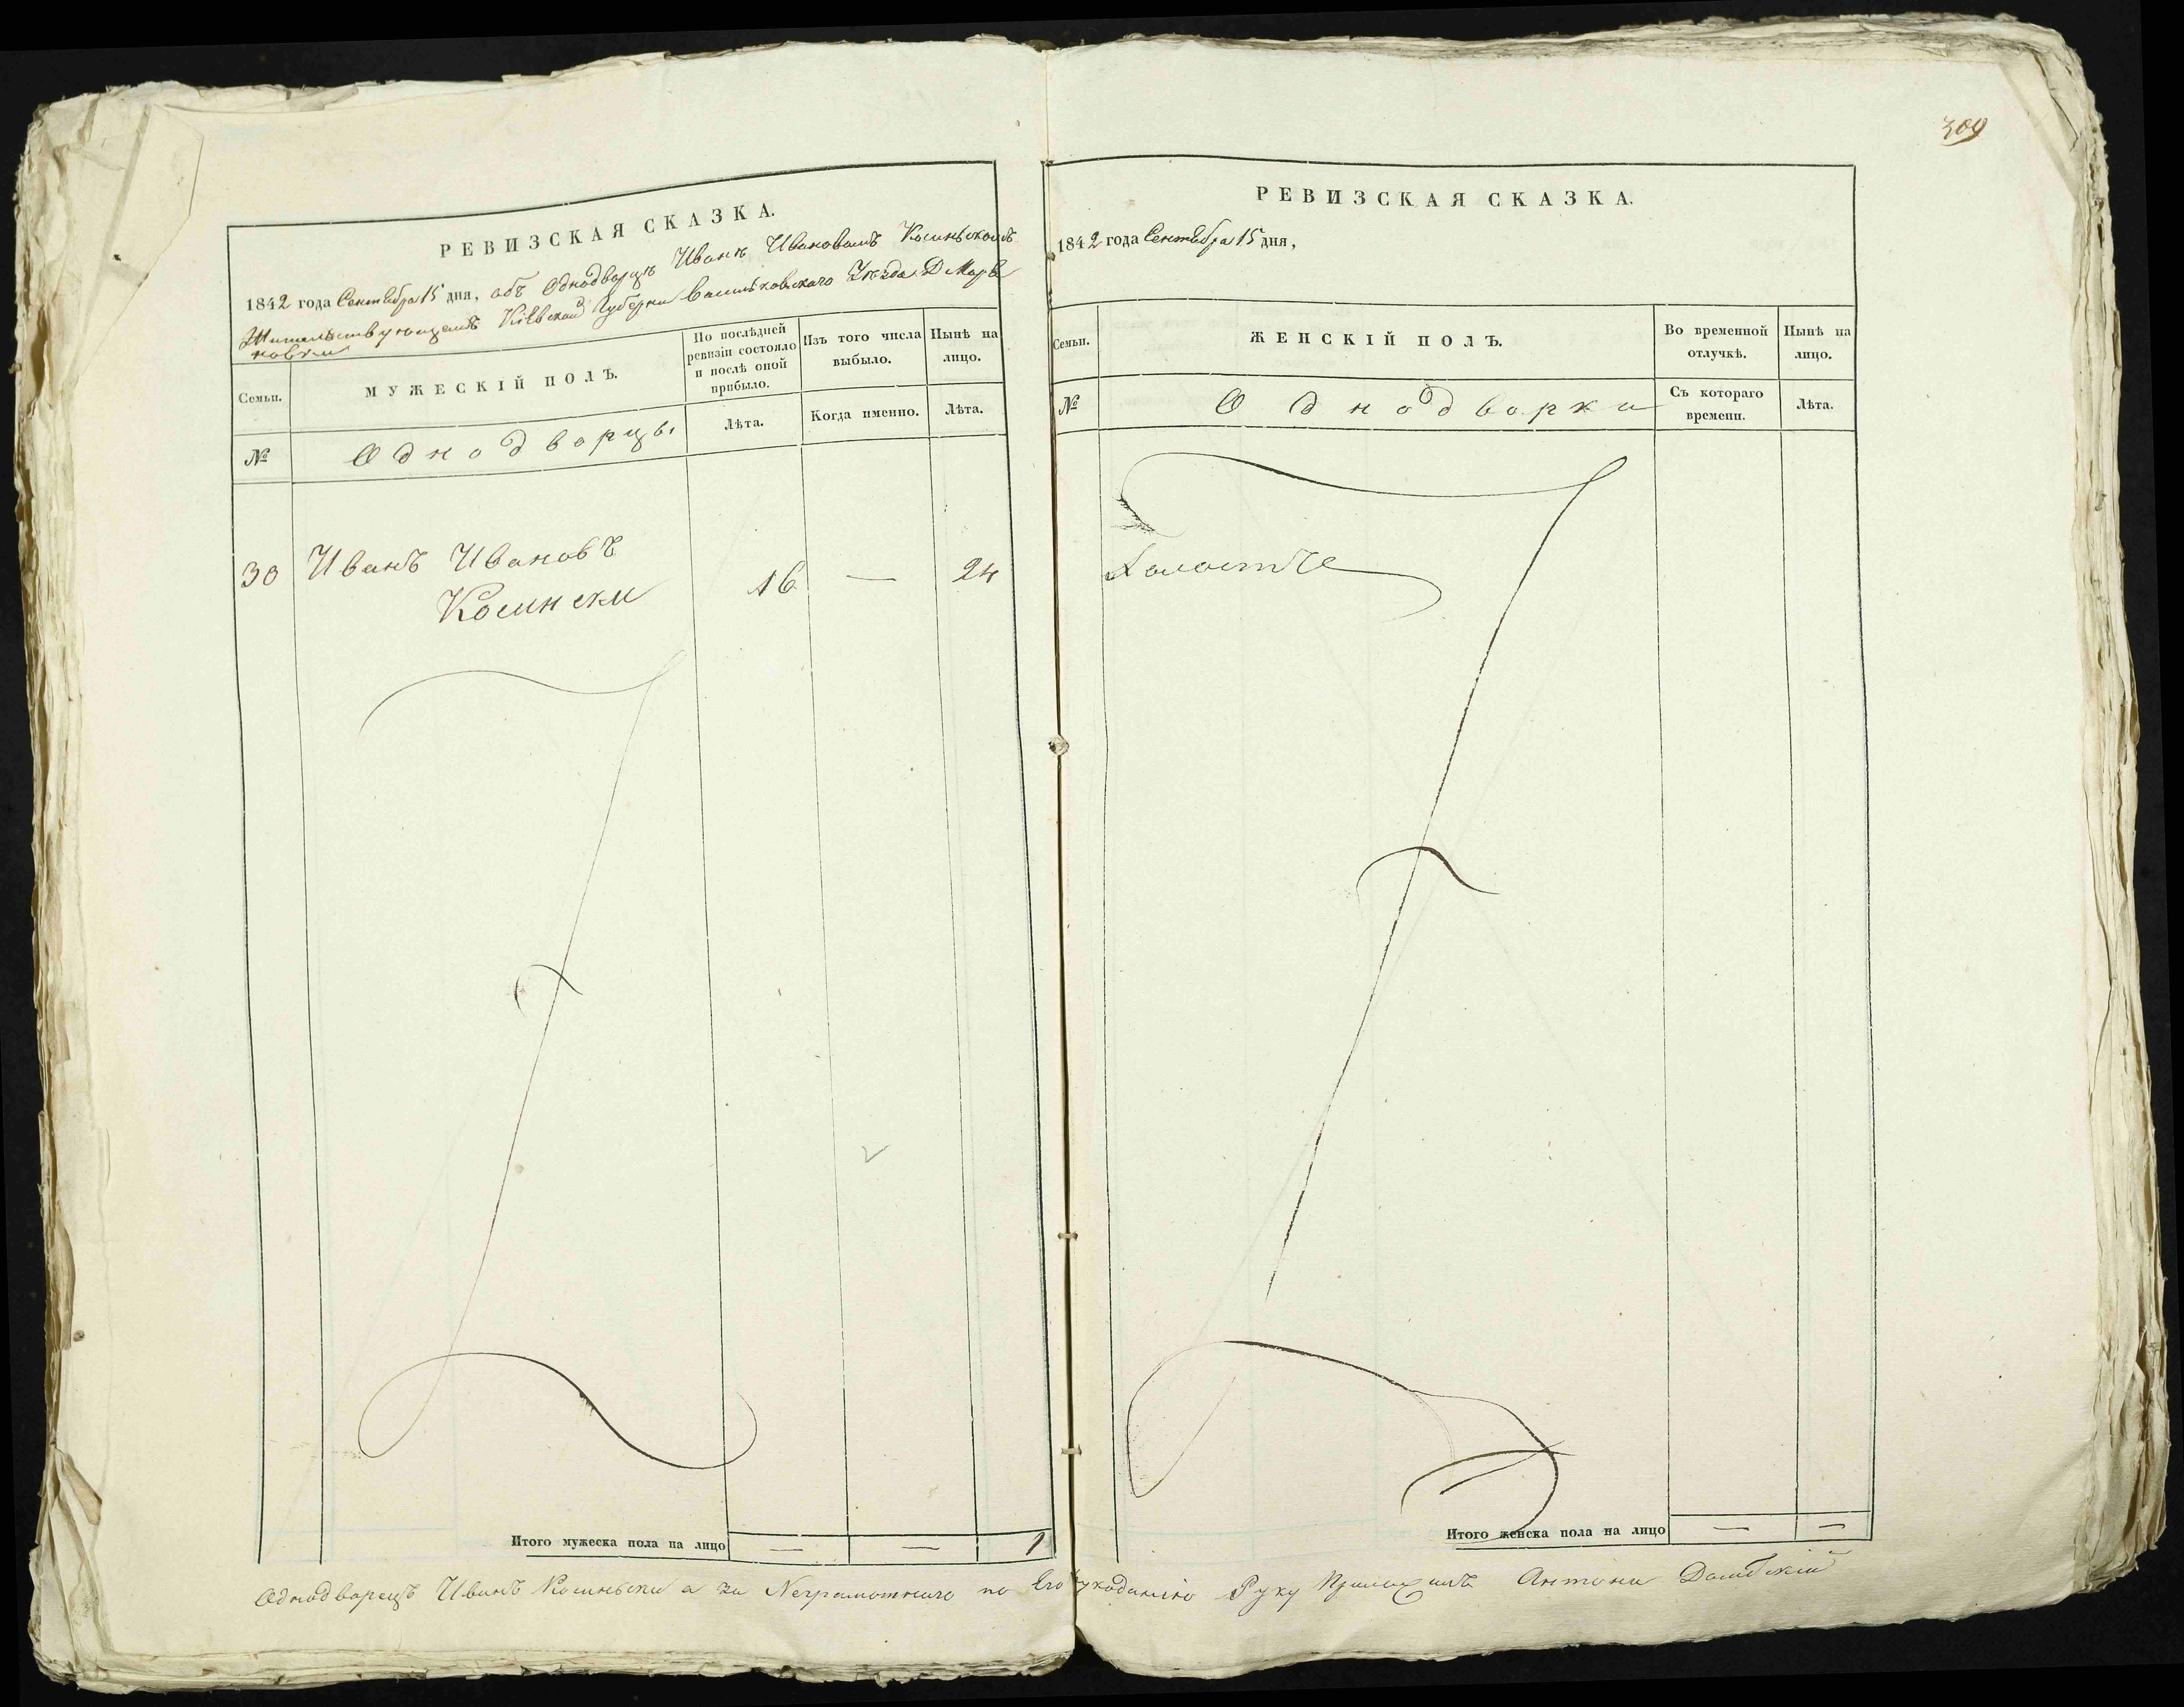 309
РЕВИЗСКАЯ СКАЗКА.
1842 года Сентября 15 дня, объ Однодворцѣ Иванѣ Ивановомъ Косиньскомъ
Жительствующемъ Кіевской Губерни Васильковскаго Уѣзда Д Марья
новки
Семьи.
МУЖЕСКІЙ ПОЛЪ.
По послѣдней ревизіи состояло и послѣ оной прибыло.
Изъ того числа выбыло.
Нынѣ на лицо.
№
Однодворцы
Лѣта.
Когда именно.
Лѣта.
30 Иванъ Ивановъ
Косински 16 — 24
Итого мужеска пола на лицо — — 1
РЕВИЗСКАЯ СКАЗКА.
1842 года Сентября 15 дня,
Семьи.
ЖЕНСКІЙ ПОЛЪ.
Во временной отлучкѣ.
Нынѣ на лицо.
№
Однодворки
Съ котораго времени.
Лѣта.
Итого женска пола на лицо — —
Однодворецъ Иванъ Косиньски а за Неграмотнаго по Его Руку Антони